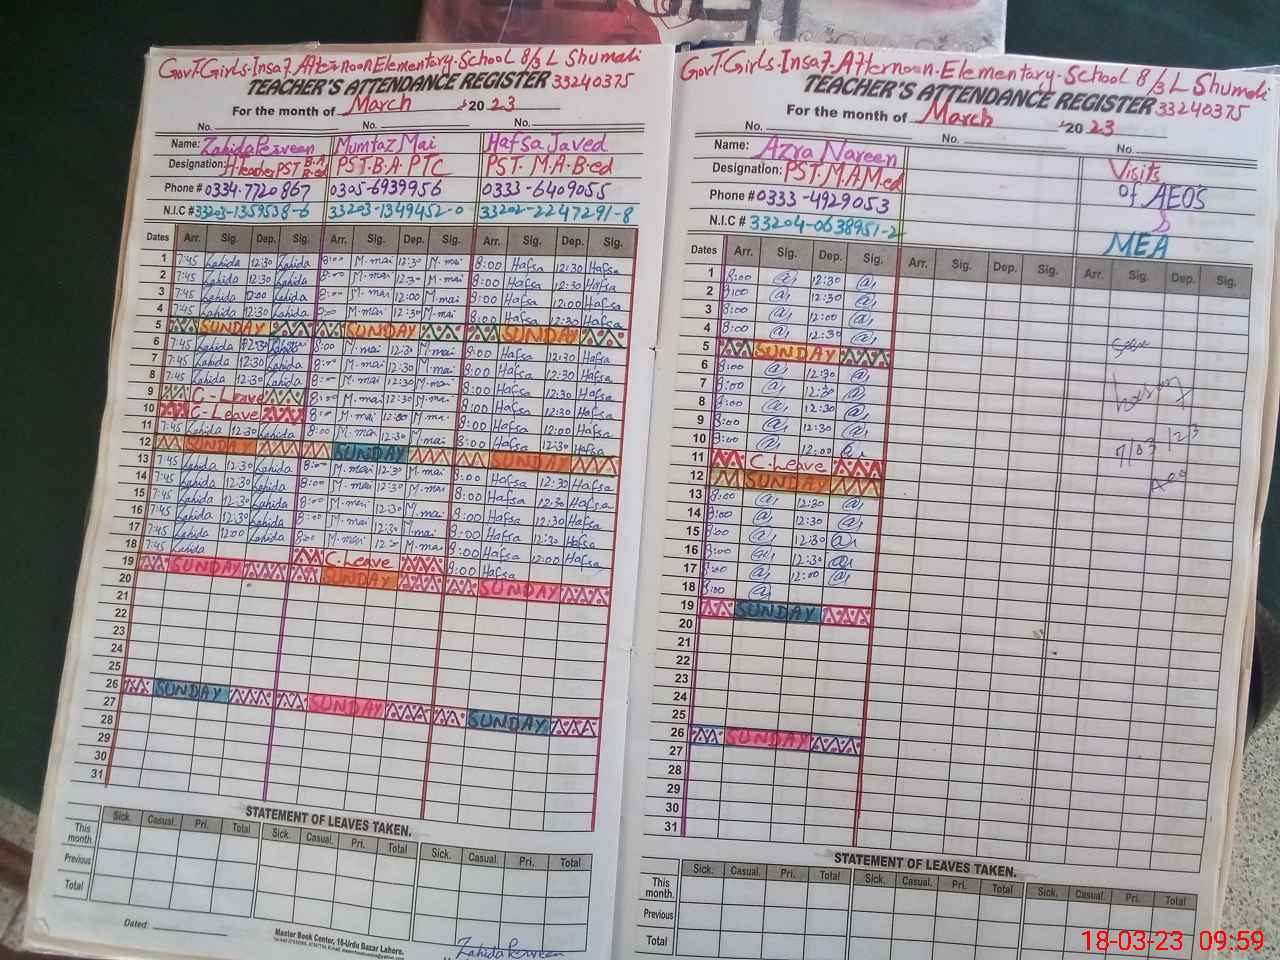 Govt. Girls. Insaf. Afternoon Elementary. School 8/3 L Shumali
TEACHER'S ATTENDANCE REGISTER 33240375
For the month of March 2023
No. No. No.
Name: Zahida Perveen Mumtaz Mai Hafsa Javed
Designation: H.Teacher PST B.A B.ed PST.B.A. PTC PST. M.A. B-ed
Phone # 0334-7720867 0305-6939956 0333-6409055
N.I.C # 33203-1359538-6 33203-1349452-0 33202-2247291-8
Dates Arr. Sig. Dep. Sig. Arr. Sig. Dep. Sig. Arr. Sig. Dep. Sig.
1 7:45 Zahida 12:30 Zahida 8:00 M.mai 12:30 M.mai 8:00 Hafsa 12:30 Hafsa
2 7:45 Zahida 12:30 Zahida 8:00 M.mai 12:30 M.mai 8:00 Hafsa 12:30 Hafsa
3 7:45 Zahida 12:00 Zahida 8:00 M.mai 12:00 M.mai 8:00 Hafsa 12:00 Hafsa
4 7:45 Zahida 12:30 Zahida 8:00 M.mai 12:30 M.mai 8:00 Hafsa 12:30 Hafsa
5 SUNDAY SUNDAY SUNDAY
6 7:45 Zahida 12:30 Zahida 8:00 M.mai 12:30 M.mai 8:00 Hafsa 12:30 Hafsa
7 7:45 Zahida 12:30 Zahida 8:00 M.mai 12:30 M.mai 8:00 Hafsa 12:30 Hafsa
8 7:45 Zahida 12:30 Zahida 8:00 M.mai 12:30 M.mai 8:00 Hafsa 12:30 Hafsa
9 C-Leave 8:00 M.mai 12:30 M.mai 8:00 Hafsa 12:30 Hafsa
10 C-Leave 8:00 M.mai 12:00 M.mai 8:00 Hafsa 12:00 Hafsa
11 7:45 Zahida 12:30 Zahida 8:00 M.mai 12:30 M.mai 8:00 Hafsa 12:30 Hafsa
12 SUNDAY SUNDAY SUNDAY
13 7:45 Zahida 12:30 Zahida 8:00 M.mai 12:30 M.mai 8:00 Hafsa 12:30 Hafsa
14 7:45 Zahida 12:30 Zahida 8:00 M.mai 12:30 M.mai 8:00 Hafsa 12:30 Hafsa
15 7:45 Zahida 12:30 Zahida 8:00 M.mai 12:30 M.mai 8:00 Hafsa 12:30 Hafsa
16 7:45 Zahida 12:30 Zahida 8:00 M.mai 12:30 M.mai 8:00 Hafsa 12:30 Hafsa
17 7:45 Zahida 12:00 Zahida 8:00 M.mai M.mai 8:00 Hafsa 12:00 Hafsa
18 7:45 Zahida C.Leave 8:00 Hafsa
19 SUNDAY SUNDAY SUNDAY
20
21
22
23
24
25
26 SUNDAY SUNDAY SUNDAY
27
28
29
30
31
STATEMENT OF LEAVES TAKEN.
Sick. Casual. Pri. Total Sick. Casual. Pri. Total Sick. Casual. Pri. Total
This month.
Previous
Total
Dated:
Master Book Center, 16-Urdu Bazar Lahore.
Zahida Perveen
Govt. Girls. Insaf. Afternoon. Elementary. School 8/3 L Shumali
TEACHER'S ATTENDANCE REGISTER 33240375
For the month of March 2023
No. No. No.
Name: Azra Nareen Visits
Designation: PST. M.A M.ed of AEOS
Phone # 0333-4929053 &
N.I.C # 33204-0638951-2 MEA
Dates Arr. Sig. Dep. Sig. Arr. Sig. Dep. Sig. Arr. Sig. Dep. Sig.
1 8:00 12:30
2 8:00 12:30
3 8:00 12:00
4 8:00 12:30
5 SUNDAY
6 8:00 12:30
7 8:00 12:30
8 8:00 12:30
9 8:00 12:30
10 8:00 12:00
11 C.Leave
12 SUNDAY
13 8:00 12:30
14 8:00 12:30
15 8:00 12:30
16 8:00 12:30
17 8:00 12:00
18 8:00
19 SUNDAY
20
21
22
23
24
25
26 SUNDAY
27
28
29
30
31
7/03/23
AEO
STATEMENT OF LEAVES TAKEN.
Sick. Casual. Pri. Total Sick. Casual. Pri. Total Sick. Casual. Pri. Total
This month.
Previous
Total
18-03-23 09:59